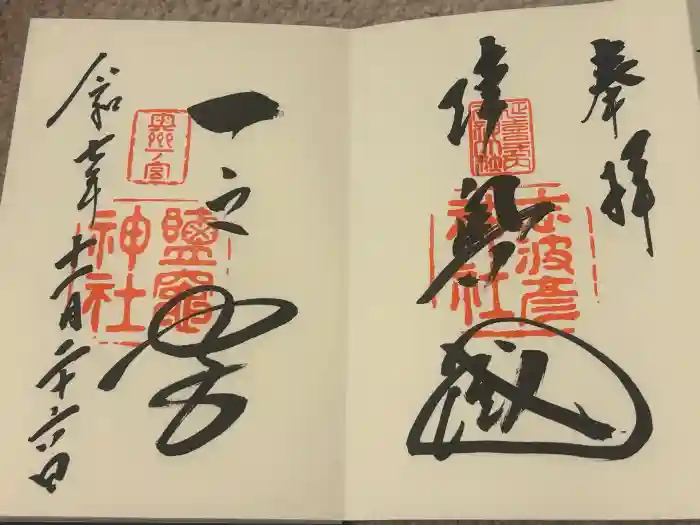 奉拝
陸奥國
志波彦
神社
一之宮
奥州
一宮
鹽竈
神社
令和七年十一月二十六日